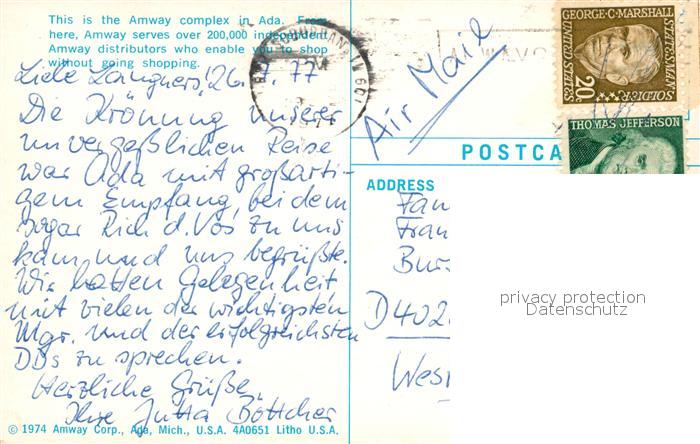 This is the Amway complex in Ada. From
here, Amway serves over 200,000 independent
Amway distributors who enable you to shop
without going shopping.
Liebe Langners! 26.7.77
Die Krönung unserer
unvergeßlichen Reise
war Ada mit großarti-
gem Empfang, bei dem
sogar Rich d. Vos zu uns
kam und uns begrüßte.
Wir hatten Gelegenheit
mit vielen der wichtigsten
Mgr. und der erfolgreichsten
DDs zu sprechen.
Herzliche Grüße
Ihre Jutta Böttcher
© 1974 Amway Corp., Ada, Mich., U.S.A. 4A0651 Litho U.S.A.
Air Mail
GEORGE C. MARSHALL
STATESMAN
SOLDIER
UNITED STATES
20c
THOMAS JEFFERSON
POSTCA
ADDRESS
Fam
Fran
Bur
D 402
Wes
privacy protection
Datenschutz